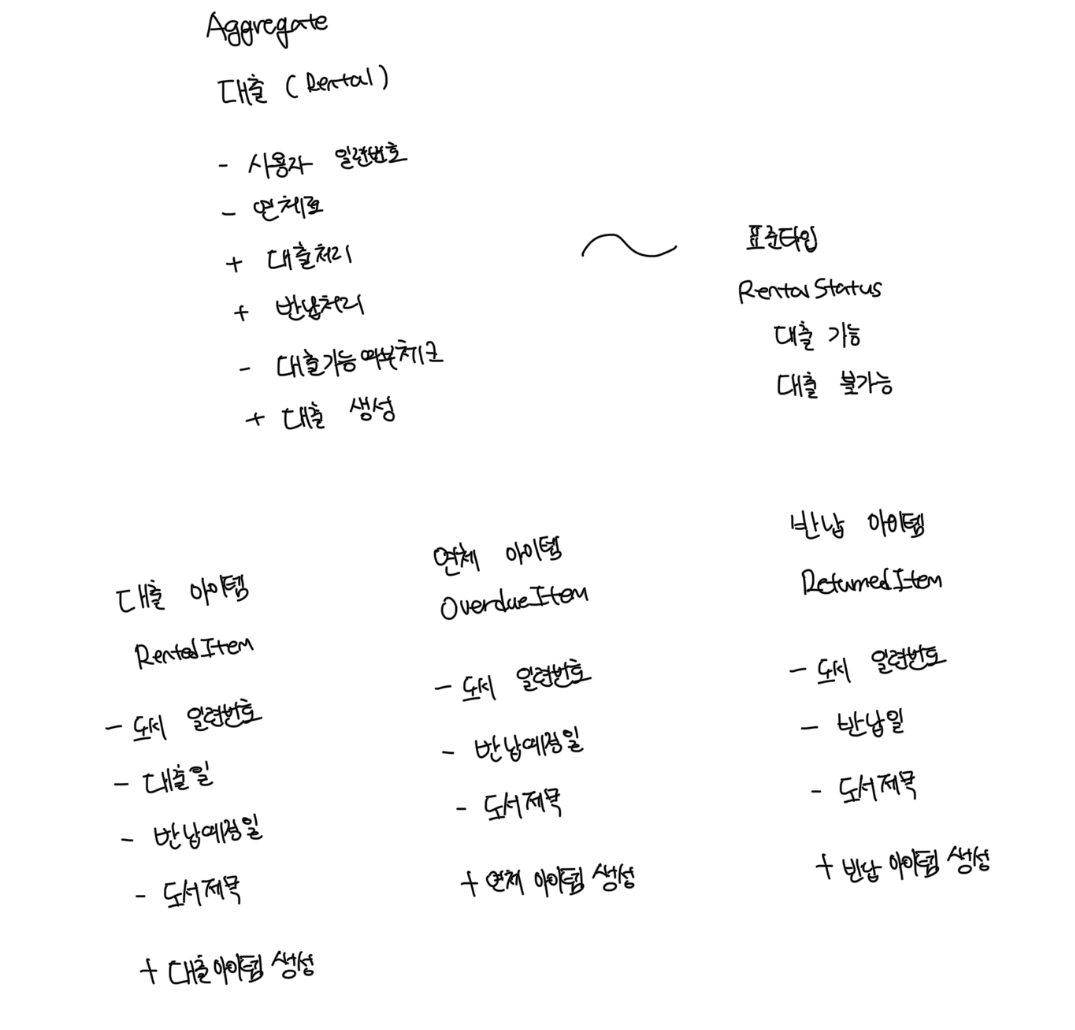 Aggregate
대출 (Rental)
- 사용자 일련번호
- 연체료
+ 대출처리
+ 반납처리
- 대출가능여부체크
+ 대출 생성
표준타입
RentalStatus
대출 가능
대출 불가능
대출 아이템
RentedItem
- 도서 일련번호
- 대출일
- 반납예정일
- 도서제목
+ 대출아이템 생성
연체 아이템
OverdueItem
- 도서 일련번호
- 반납예정일
- 도서제목
+ 연체 아이템 생성
반납 아이템
ReturnedItem
- 도서 일련번호
- 반납일
- 도서제목
+ 반납 아이템 생성